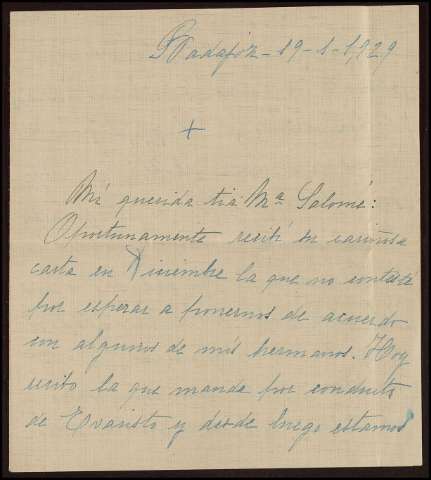 Badajoz - 19 - 1 - 1929
+
Mi querida tia Mª Salomé:
Oportunamente recibí su cariñosa
carta en Diciembre la que no contesté
por esperar a ponernos de acuerdo
con algunos de mis hermanos. Hoy
recibo la que manda por conducto
de Evaristo y desde luego estamos